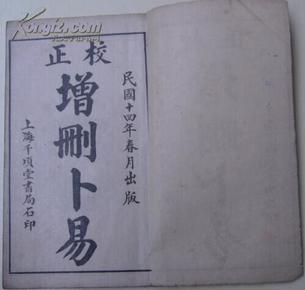 校正
民國十四年春月出版
增刪卜易
上海千頃堂書局石印